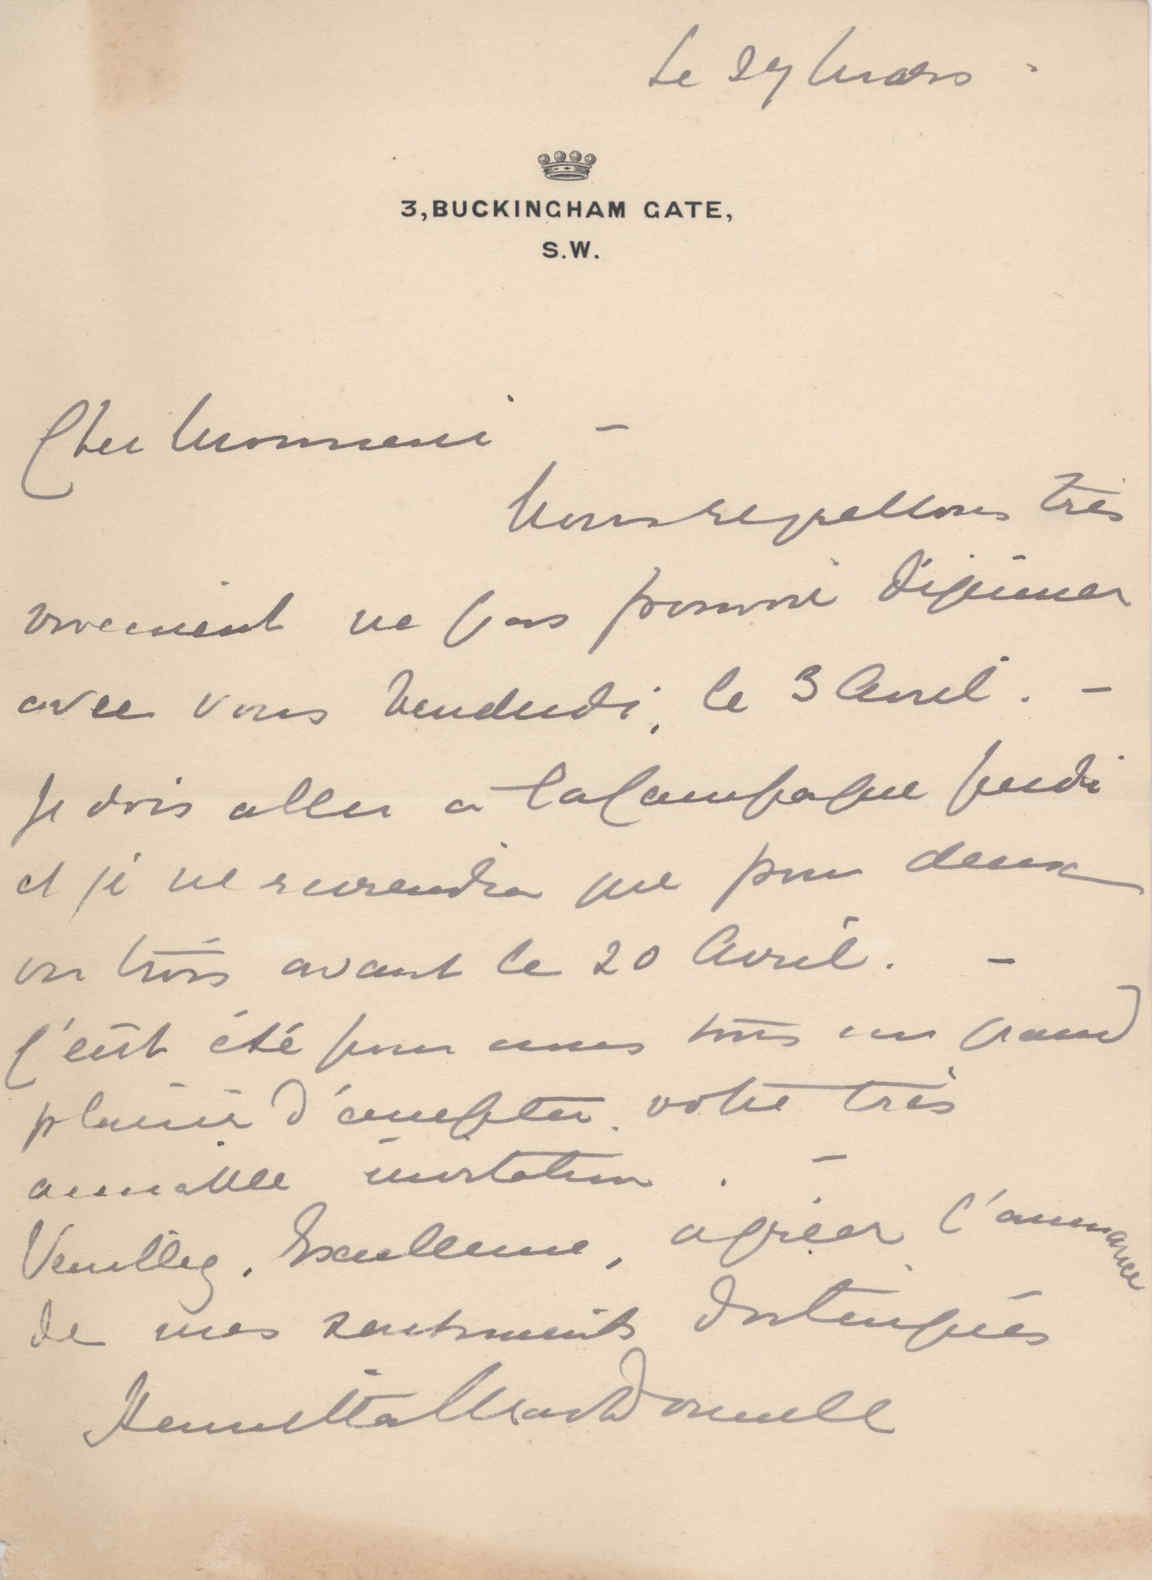 Le 27 Mars
3, BUCKINGHAM GATE,
S.W.
Cher Monsieur –
Nous regrettons très
vivement ne pas pouvoir déjeuner
avec vous Vendredi, le 3 Avril. –
Je dois aller à la Campagne Jeudi
et je ne reviendrai que pour deux
ou trois avant le 20 Avril. –
C'eût été pour nous tous un grand
plaisir d'accepter votre très
aimable invitation. –
Veuillez, Excellence, agréer l'assurance
de mes sentiments distingués
Henrietta MacDonnell